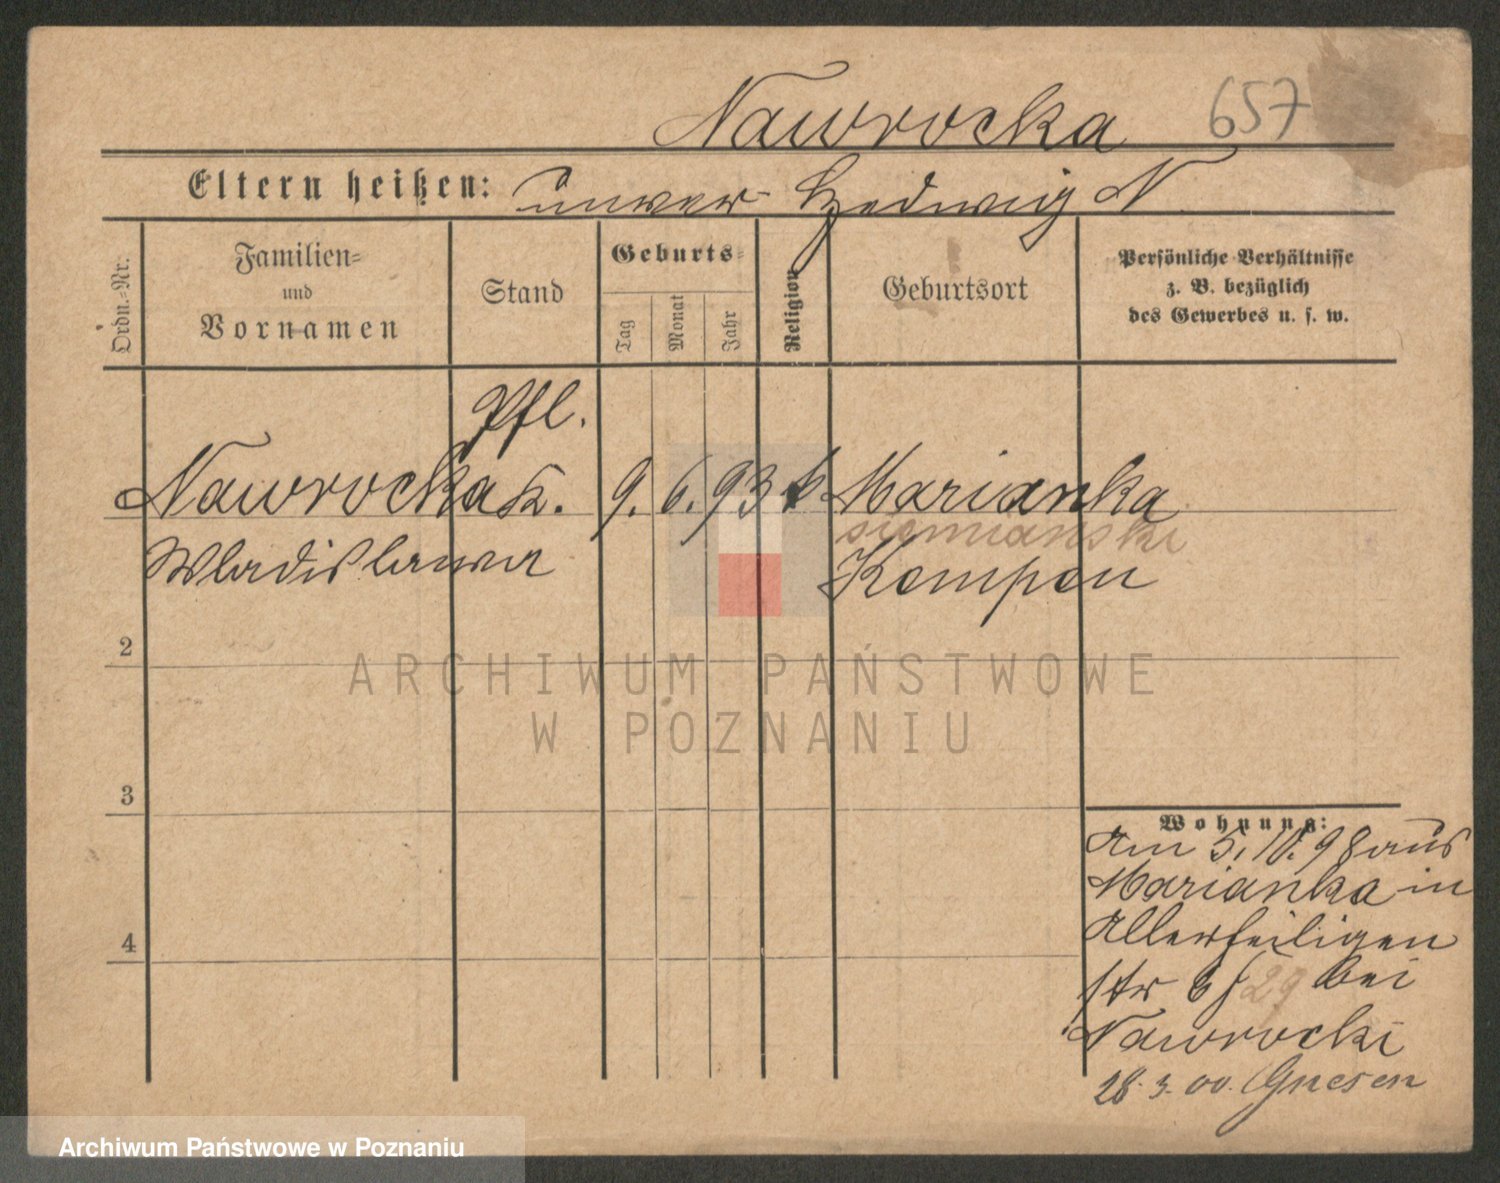 Nawrocka 657
Eltern heißen: unver. Hedwig N
Ordn.-Nr.
Familien-
und
Vornamen
Stand
Geburts-
Tag
Monat
Jahr
Religion
Geburtsort
Persönliche Verhältnisse
z. B. bezüglich
des Gewerbes u. s. w.
Pfl.
Nawrocka K. 9. 6. 93 k. Marianka
siemianski
Wladislawa Kempen
2
3
4
Wohnung:
Am 5. 10. 98 aus
Marianka in
Allerheiligen
str 6 29 bei
Nawrocki
28. 3. 00. Gnesen
ARCHIWUM PAŃSTWOWE
W POZNANIU
Archiwum Państwowe w Poznaniu